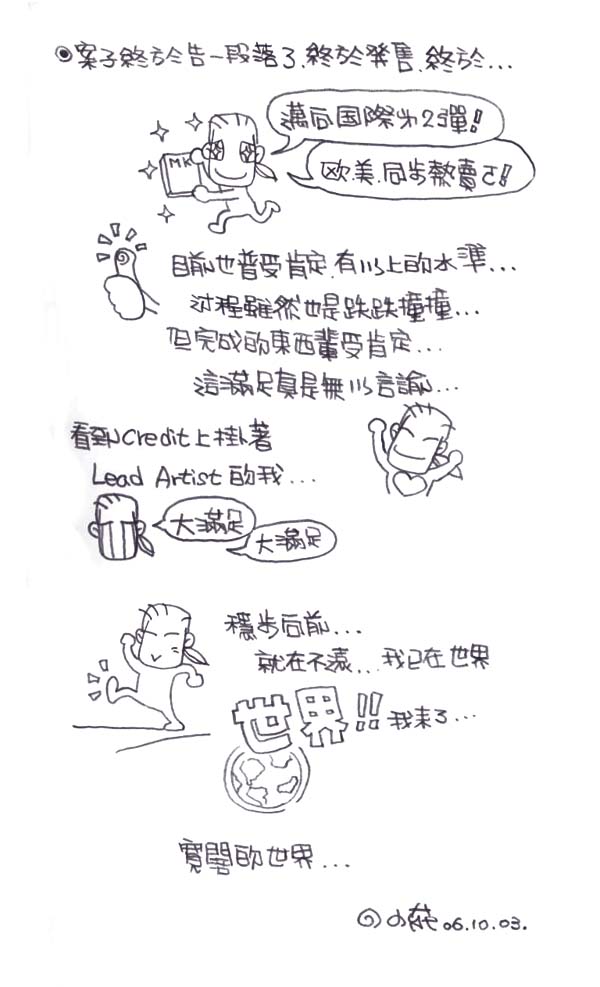 ◉案子終於告一段落了.終於發售.終於...
邁向国際第2彈!!
MK
欧.美.同步熱賣ㄛ!!
目前也普受肯定.有以上的水準...
过程雖然也是跌跌撞撞...
但完成的東西輩受肯定...
這滿足真是無以言諭...
看到Credit上掛著
Lead Artist的我...
大滿足
大滿足
穩步向前...
就在不遠...我已在世界
世界!!我来了...
寬闊的世界...
小莊 06.10.03.